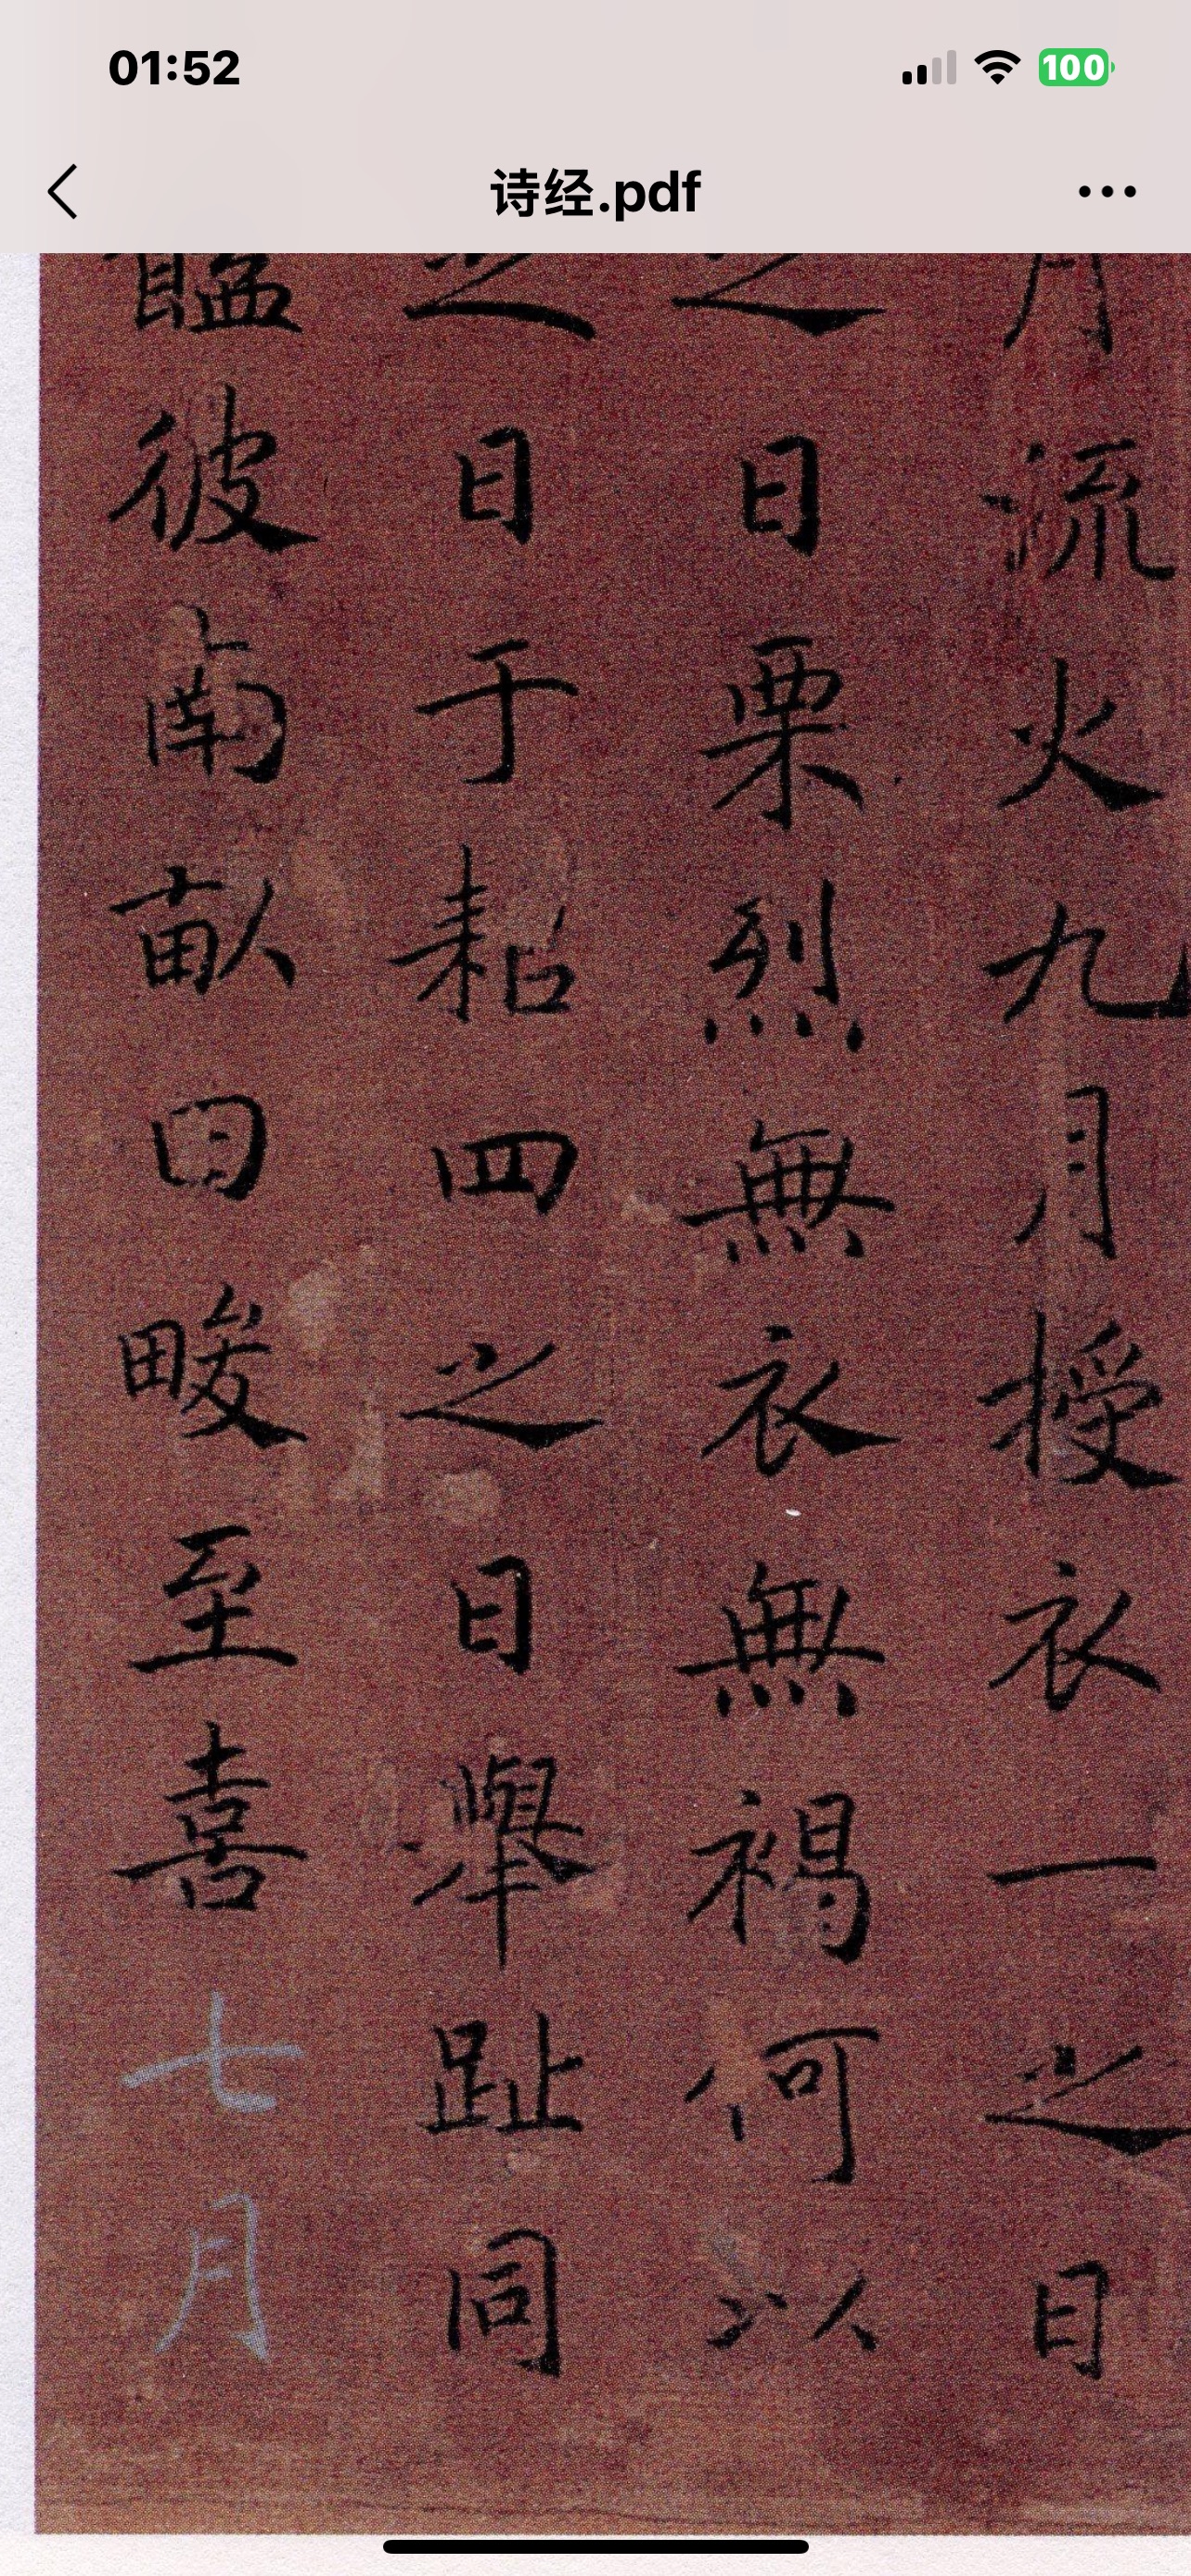 01:52
100
诗经.pdf
月流火九月授衣一之日
之日栗烈無衣無褐何以
之日于耜四之日舉趾同
饁彼南畝田畯至喜七月